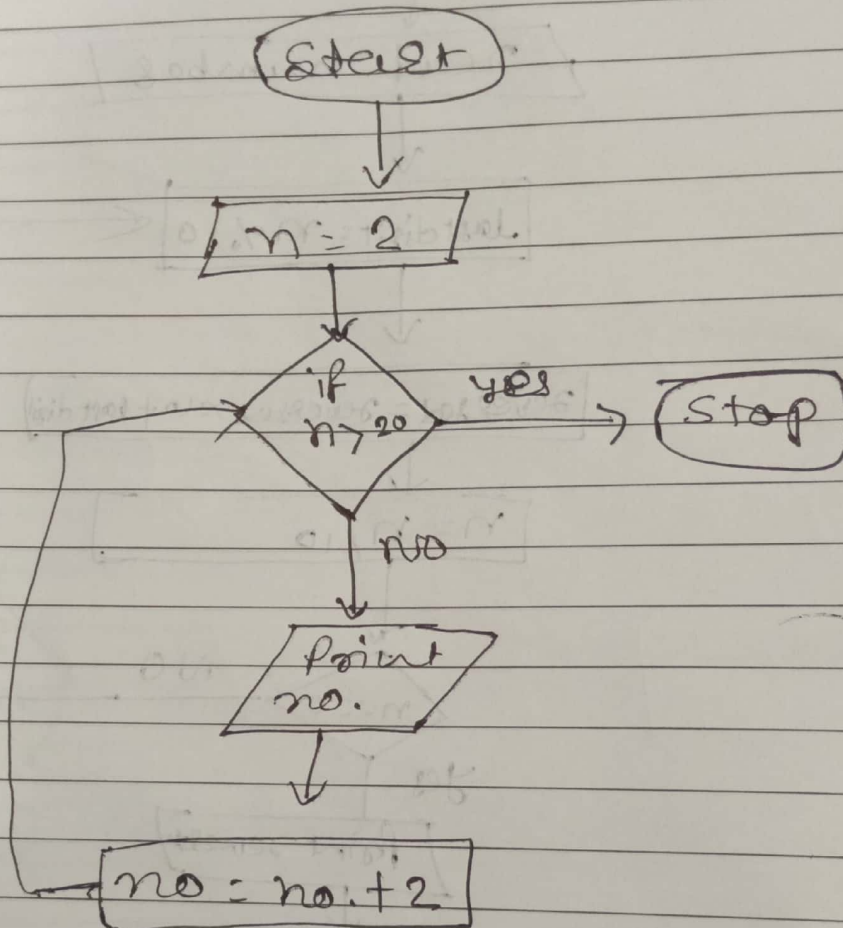 Start
n = 2
if
n > 20
yes
Stop
NO
Print
no.
no = no. + 2